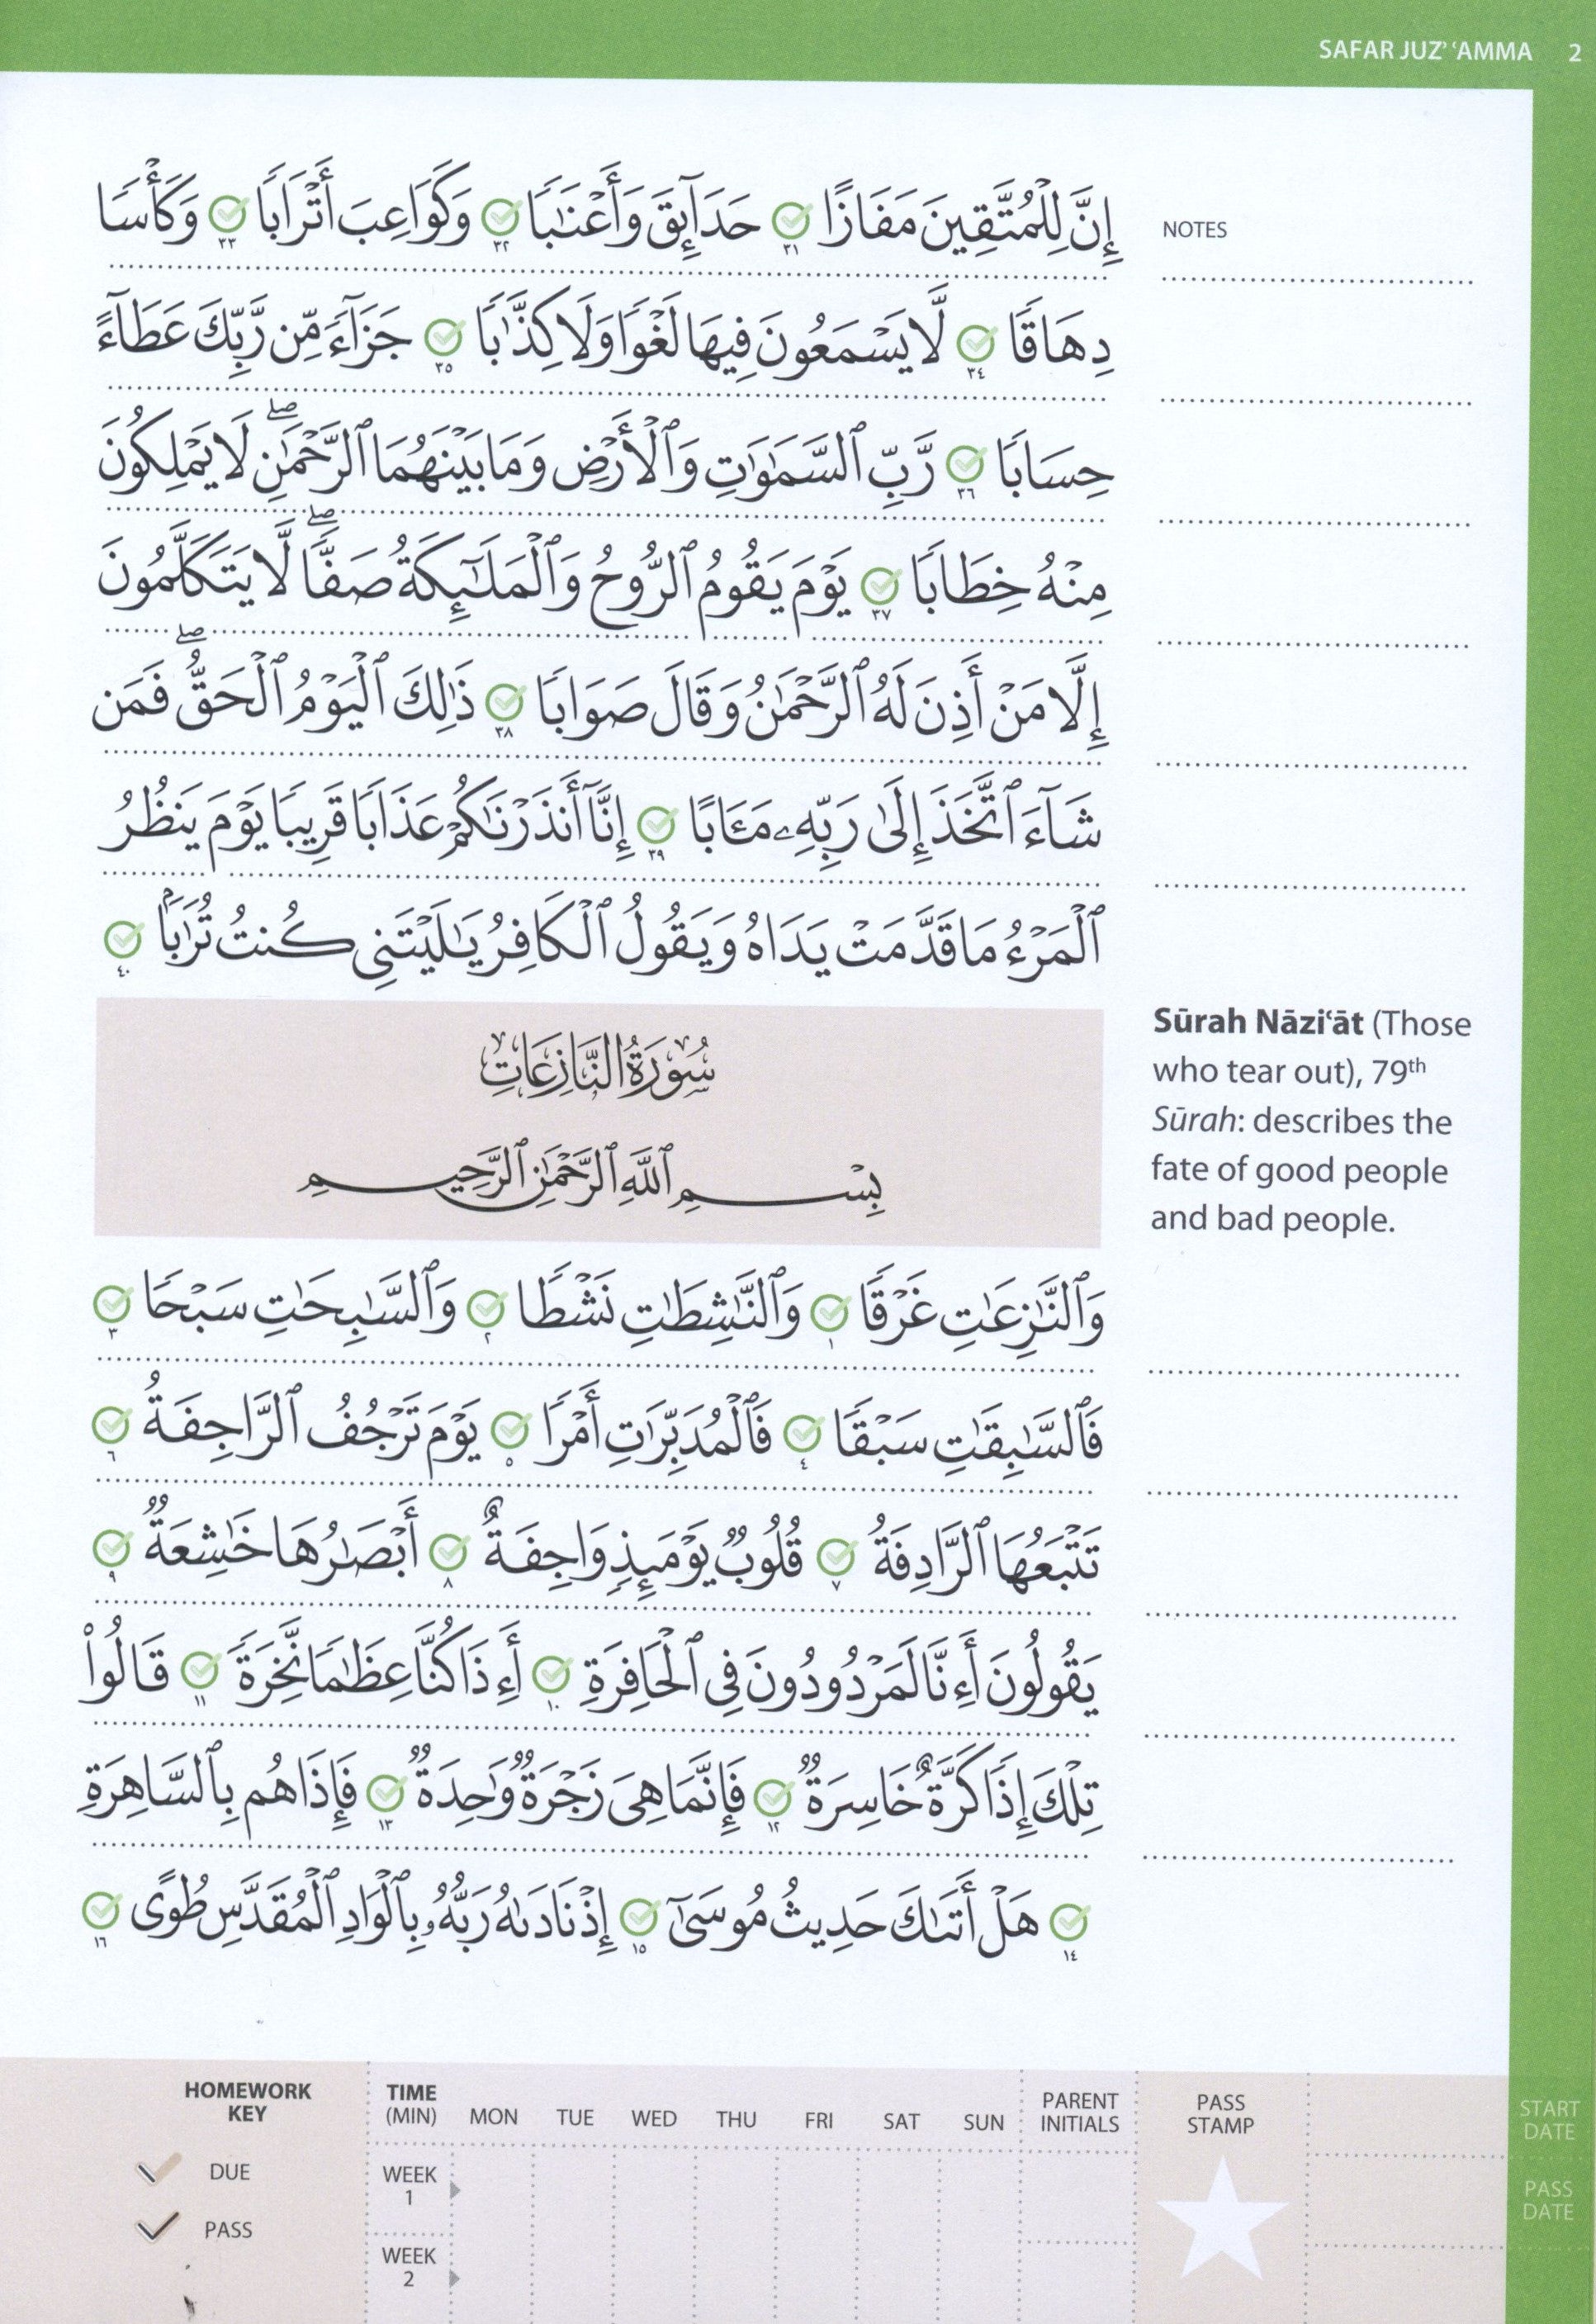 SAFAR JUZ’ ‘AMMA 2
إِنَّ لِلْمُتَّقِينَ مَفَازًا ٣١ حَدَآئِقَ وَأَعْنَٰبًا ٣٢ وَكَوَاعِبَ أَتْرَابًا ٣٣ وَكَأْسًا
NOTES
دِهَاقًا ٣٤ لَّا يَسْمَعُونَ فِيهَا لَغْوًا وَلَا كِذَّٰبًا ٣٥ جَزَآءً مِّن رَّبِّكَ عَطَآءً
حِسَابًا ٣٦ رَّبِّ ٱلسَّمَٰوَٰتِ وَٱلْأَرْضِ وَمَا بَيْنَهُمَا ٱلرَّحْمَٰنِ ۖ لَا يَمْلِكُونَ
مِنْهُ خِطَابًا ٣٧ يَوْمَ يَقُومُ ٱلرُّوحُ وَٱلْمَلَٰٓئِكَةُ صَفًّا ۖ لَّا يَتَكَلَّمُونَ
إِلَّا مَنْ أَذِنَ لَهُ ٱلرَّحْمَٰنُ وَقَالَ صَوَابًا ٣٨ ذَٰلِكَ ٱلْيَوْمُ ٱلْحَقُّ ۖ فَمَن
شَآءَ ٱتَّخَذَ إِلَىٰ رَبِّهِۦ مَـَٔابًا ٣٩ إِنَّآ أَنذَرْنَٰكُمْ عَذَابًا قَرِيبًا يَوْمَ يَنظُرُ
ٱلْمَرْءُ مَا قَدَّمَتْ يَدَاهُ وَيَقُولُ ٱلْكَافِرُ يَٰلَيْتَنِى كُنتُ تُرَٰبًۢا ٤٠
سُورَةُ النَّازِعَاتِ
بِسْمِ ٱللَّهِ ٱلرَّحْمَٰنِ ٱلرَّحِيمِ
Sūrah Nāzi‘āt (Those
who tear out), 79th
Sūrah: describes the
fate of good people
and bad people.
وَٱلنَّٰزِعَٰتِ غَرْقًا ١ وَٱلنَّٰشِطَٰتِ نَشْطًا ٢ وَٱلسَّٰبِحَٰتِ سَبْحًا ٣
فَٱلسَّٰبِقَٰتِ سَبْقًا ٤ فَٱلْمُدَبِّرَٰتِ أَمْرًا ٥ يَوْمَ تَرْجُفُ ٱلرَّاجِفَةُ ٦
تَتْبَعُهَا ٱلرَّادِفَةُ ٧ قُلُوبٌ يَوْمَئِذٍ وَاجِفَةٌ ٨ أَبْصَٰرُهَا خَٰشِعَةٌ ٩
يَقُولُونَ أَءِنَّا لَمَرْدُودُونَ فِى ٱلْحَافِرَةِ ١٠ أَءِذَا كُنَّا عِظَٰمًا نَّخِرَةً ١١ قَالُوا۟
تِلْكَ إِذًا كَرَّةٌ خَاسِرَةٌ ١٢ فَإِنَّمَا هِىَ زَجْرَةٌ وَٰحِدَةٌ ١٣ فَإِذَا هُم بِٱلسَّاهِرَةِ
١٤ هَلْ أَتَىٰكَ حَدِيثُ مُوسَىٰٓ ١٥ إِذْ نَادَىٰهُ رَبُّهُۥ بِٱلْوَادِ ٱلْمُقَدَّسِ طُوًى ١٦
HOMEWORK
KEY
DUE
PASS
TIME
(MIN) MON TUE WED THU FRI SAT SUN
PARENT
INITIALS
WEEK
1
WEEK
2
PASS
STAMP
START
DATE
PASS
DATE